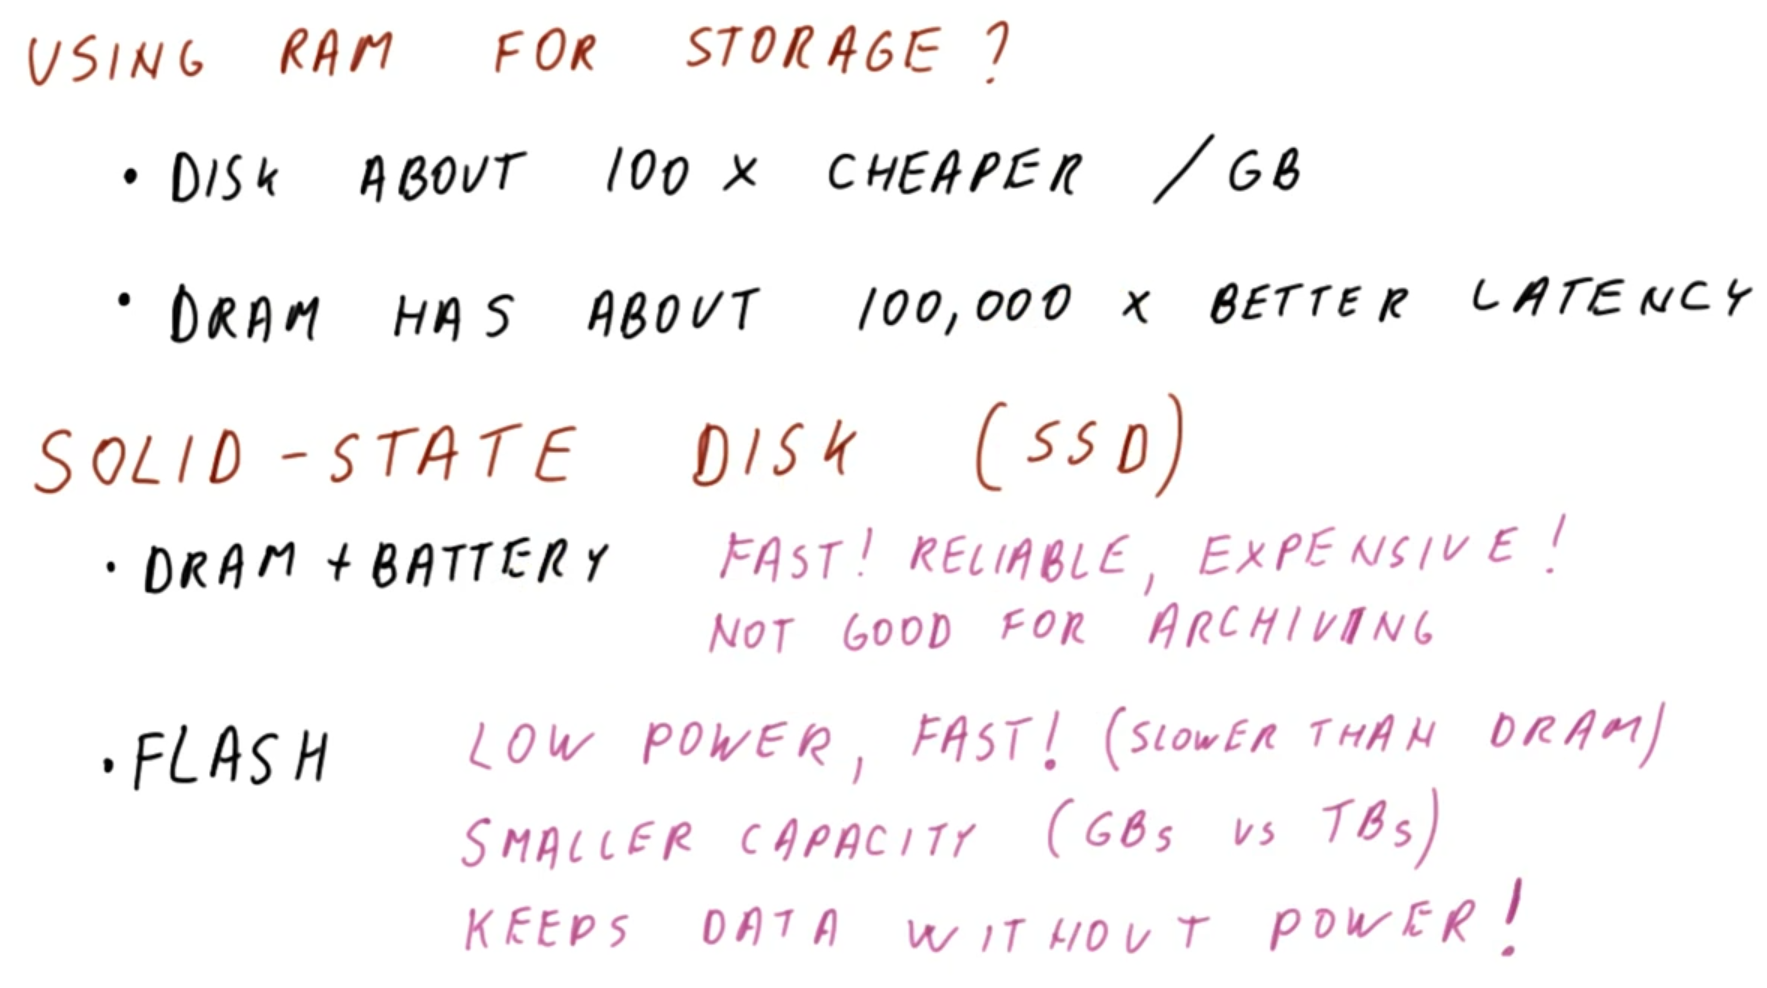 USING RAM FOR STORAGE?
• DISK ABOUT 100 x CHEAPER / GB
• DRAM HAS ABOUT 100,000 x BETTER LATENCY
SOLID-STATE DISK (SSD)
• DRAM + BATTERY FAST! RELIABLE, EXPENSIVE!
NOT GOOD FOR ARCHIVING
• FLASH LOW POWER, FAST! (SLOWER THAN DRAM)
SMALLER CAPACITY (GBs vs TBs)
KEEPS DATA WITHOUT POWER!